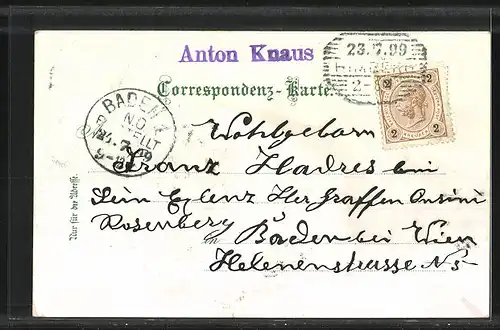 Anton Knaus
23.7.99
2-
Correspondenz-Karte.
2 2
2 2
BADEN
N.Ö.
BESTELLT
24.7.99
9-
Wohlgeborn
Franz Hadres bei
Sein Exlenz Her Graffen Orsini
Rosenberg
in Baden bei Wien
Helenenstrasse No 5
Nur für die Adresse.